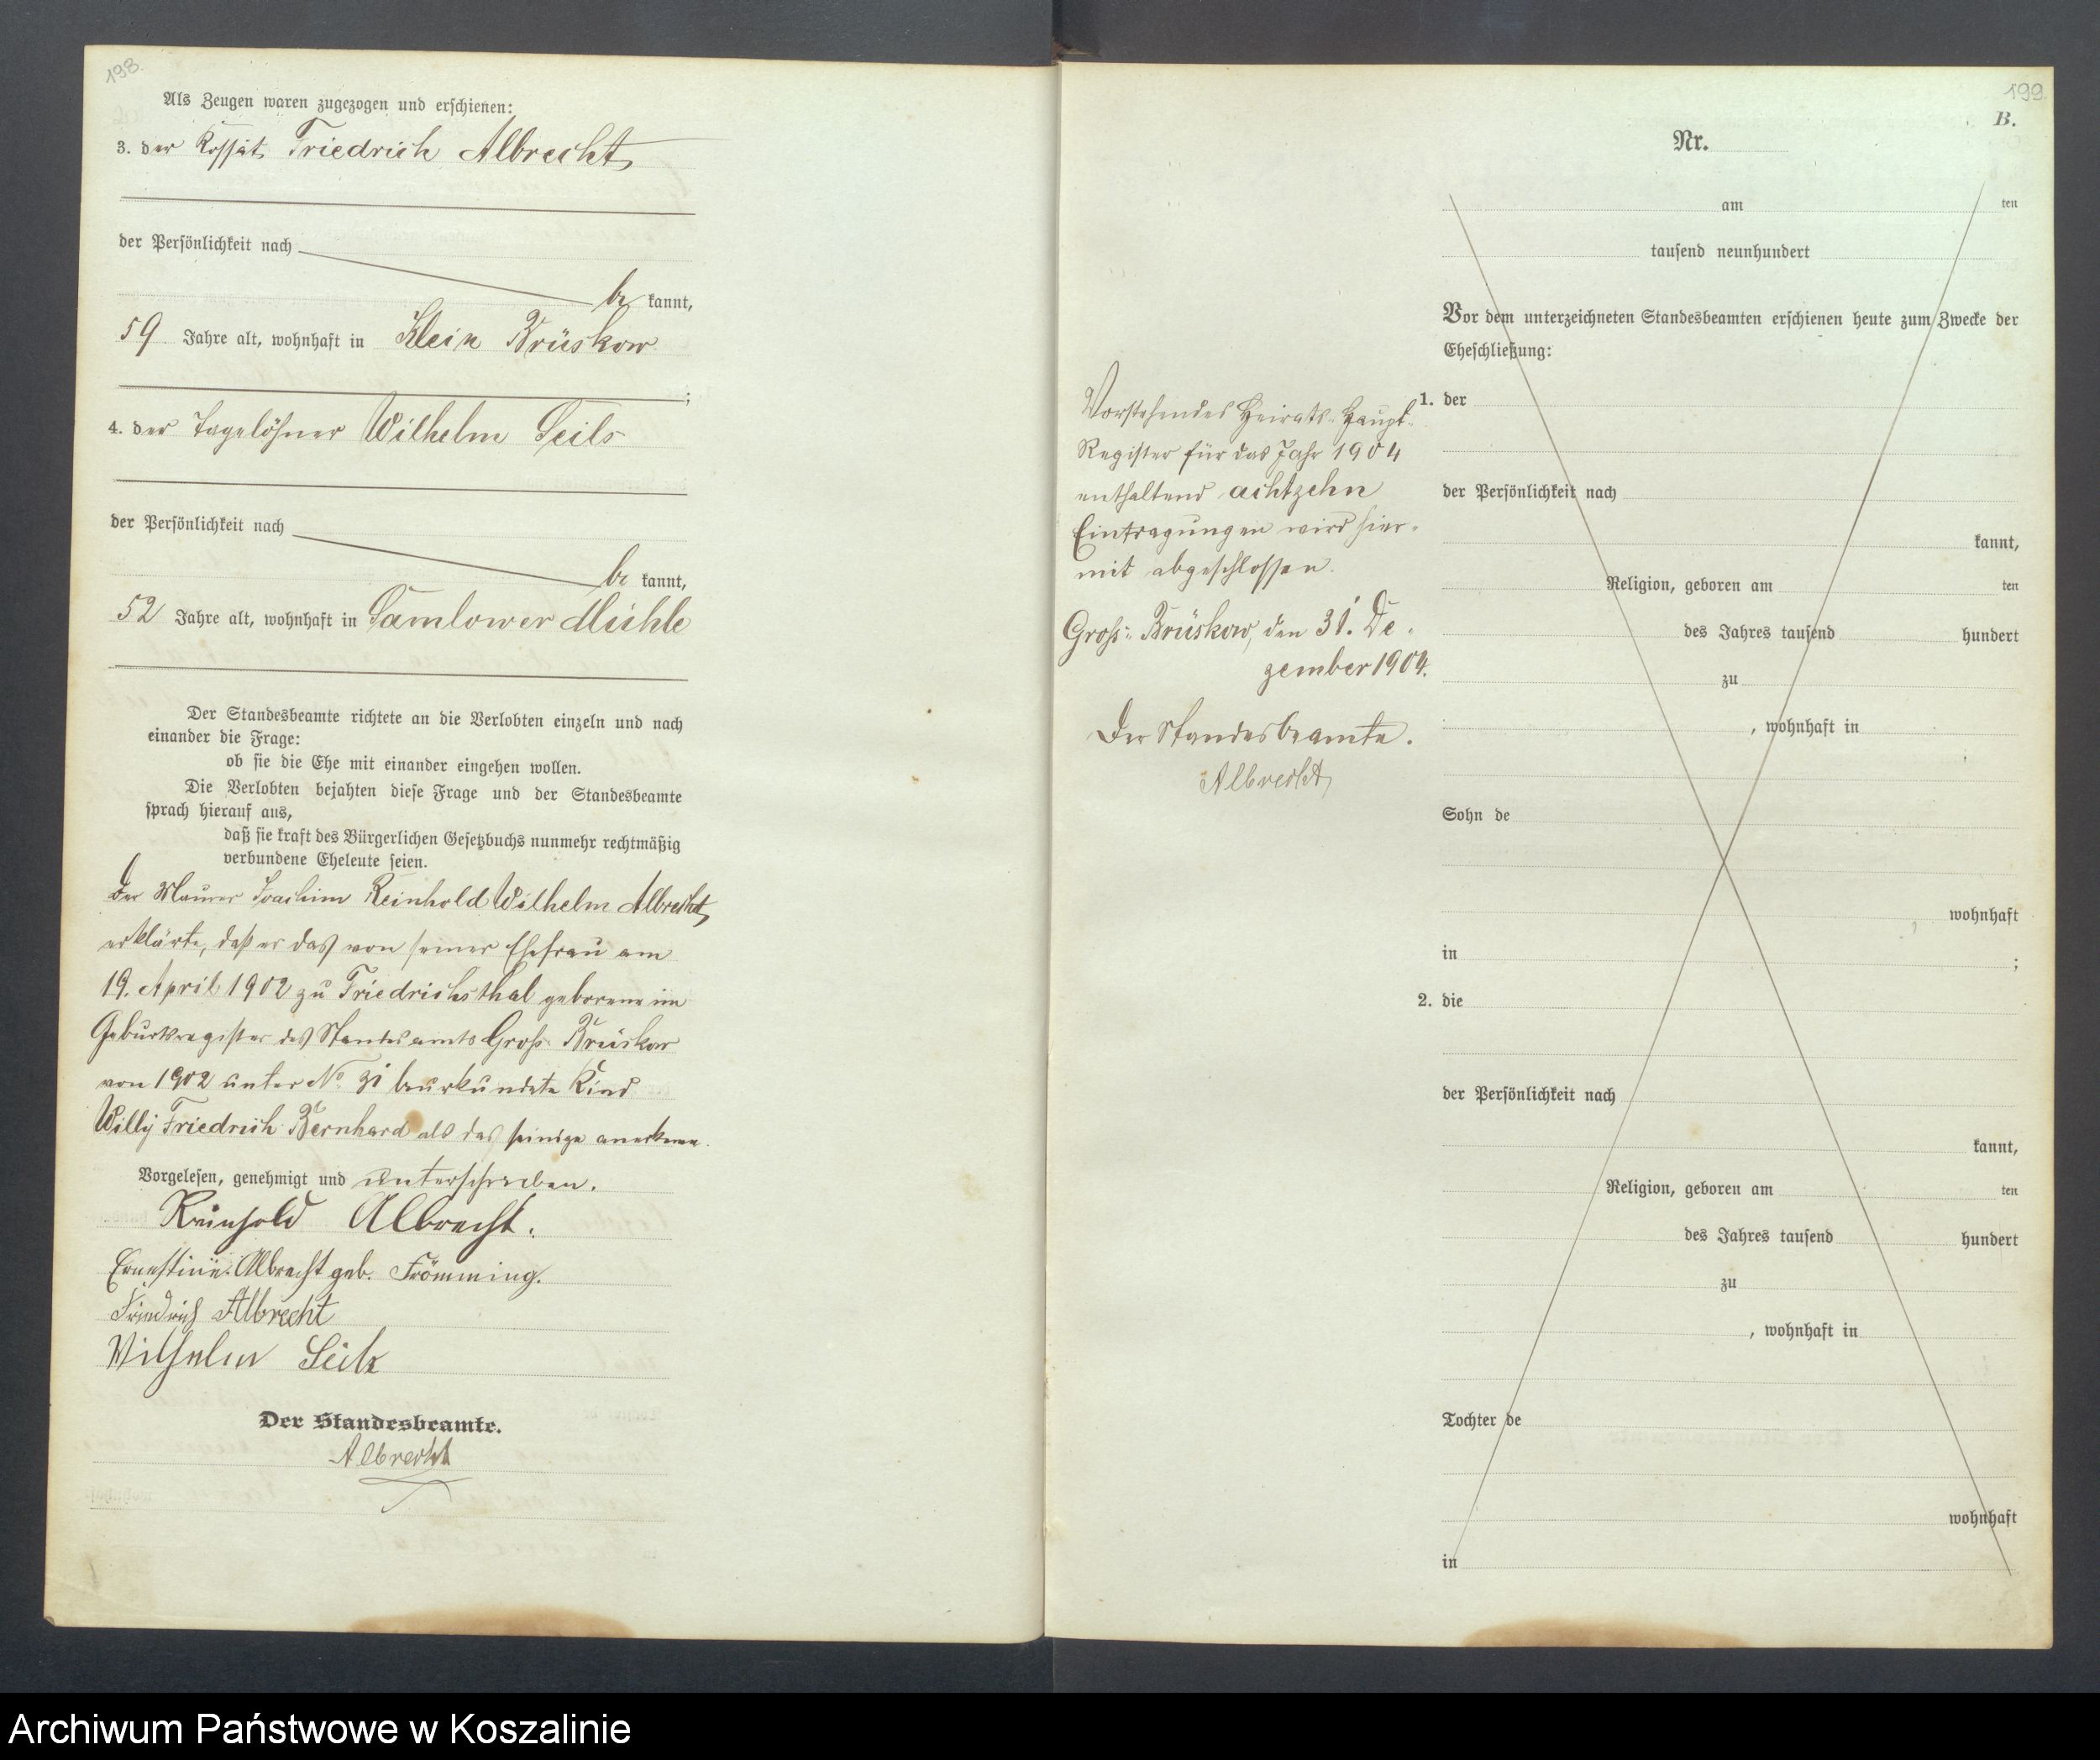 198.
Als Zeugen waren zugezogen und erschienen:
3. der Kossät Friedrich Albrecht
der Persönlichkeit nach
be kannt,
59 Jahre alt, wohnhaft in Klein Brüskow
;
4. der Tagelöhner Wilhelm Seils
der Persönlichkeit nach
be kannt,
52 Jahre alt, wohnhaft in Samlower Mühle
Der Standesbeamte richtete an die Verlobten einzeln und nach
einander die Frage:
ob sie die Ehe mit einander eingehen wollen.
Die Verlobten bejahten diese Frage und der Standesbeamte
sprach hierauf aus,
daß sie kraft des Bürgerlichen Gesetzbuchs nunmehr rechtmäßig
verbundene Eheleute seien.
Der Maurer Joachim Reinhold Wilhelm Albrecht,
erklärte, daß er das von seiner Ehefrau am
19. April 1902 zu Friedrichsthal geborene im
Geburtsregister des Standesamts Groß Brüskow
von 1902 unter No 31 beurkundete Kind
Willy Friedrich Bernhard als das seinige anerkenne.
Vorgelesen, genehmigt und unterschrieben.
Reinhold Albrecht.
Ernestine Albrecht geb. Frömming.
Friedrich Albrecht
Wilhelm Seils
Der Standesbeamte.
Albrecht
199.
B.
Nr.
am ten
tausend neunhundert
Vor dem unterzeichneten Standesbeamten erschienen heute zum Zwecke der
Eheschließung:
1. der
der Persönlichkeit nach
kannt,
Religion, geboren am ten
des Jahres tausend hundert
zu
, wohnhaft in
Sohn de
wohnhaft
in ;
2. die
der Persönlichkeit nach
kannt,
Religion, geboren am ten
des Jahres tausend hundert
zu
, wohnhaft in
Tochter de
wohnhaft
in
Vorstehendes Heirats-Haupt-
Register für das Jahr 1904
enthaltend achtzehn
Eintragungen wird hier-
mit abgeschlossen.
Groß-Brüskow, den 31. De-
zember 1904.
Der Standesbeamte.
Albrecht
Archiwum Państwowe w Koszalinie